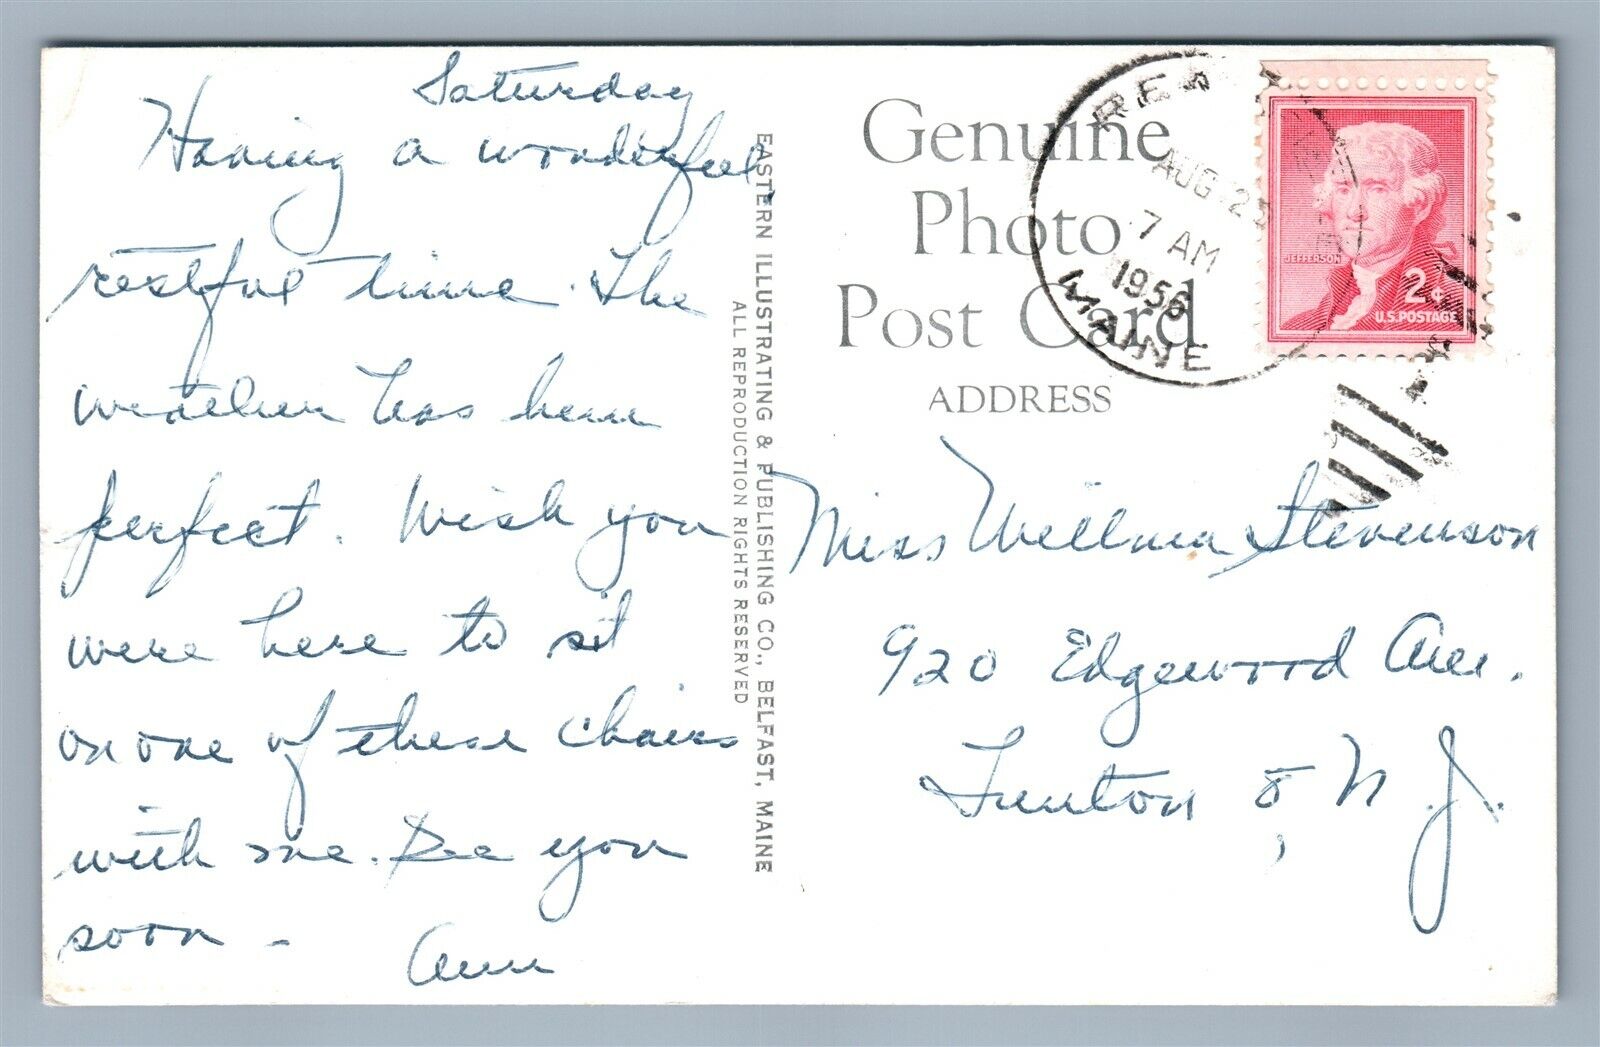 Saturday
Having a wonderful,
restful time. The
weather has been
perfect. Wish you
were here to sit
on one of these chairs
with me. See you
soon -
Ann
EASTERN ILLUSTRATING & PUBLISHING CO., BELFAST, MAINE
ALL REPRODUCTION RIGHTS RESERVED
Genuine
Photo
Post Card
ADDRESS
AUG 25
7 AM
1956
MAINE
JEFFERSON
2¢
U.S. POSTAGE
Miss Willma Stevenson
920 Edgewood Ave.
Trenton 8, N.J.